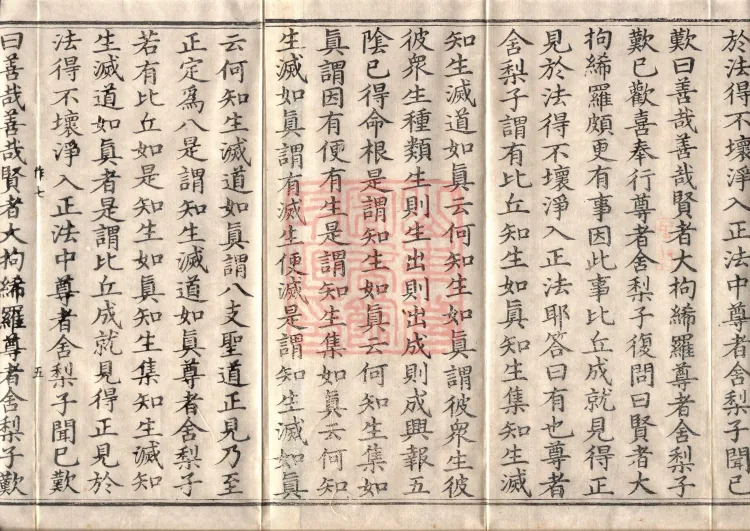 於法得不壞淨入正法中尊者舍梨子聞已
歎曰善哉善哉賢者大拘絺羅尊者舍梨子
歎已歡喜奉行尊者舍梨子復問曰賢者大
拘絺羅頗更有事因此事比丘成就見得正
見於法得不壞淨入正法耶答曰有也尊者
舍梨子謂有比丘知生如真知生集知生滅
知生滅道如真云何知生如真謂彼眾生彼
彼眾生種類生則生出則出成則成興報五
陰已得命根是謂知生如真云何知生集如
真謂因有便有生是謂知生集如真云何知
生滅如真謂有滅生便滅是謂知生滅如真
云何知生滅道如真謂八支聖道正見乃至
正定為八是謂知生滅道如真尊者舍梨子
若有比丘如是知生如真知生集知生滅知
生滅道如真者是謂比丘成就見得正見於
法得不壞淨入正法中尊者舍梨子聞已歎
作七 五
曰善哉善哉賢者大拘絺羅尊者舍梨子歎